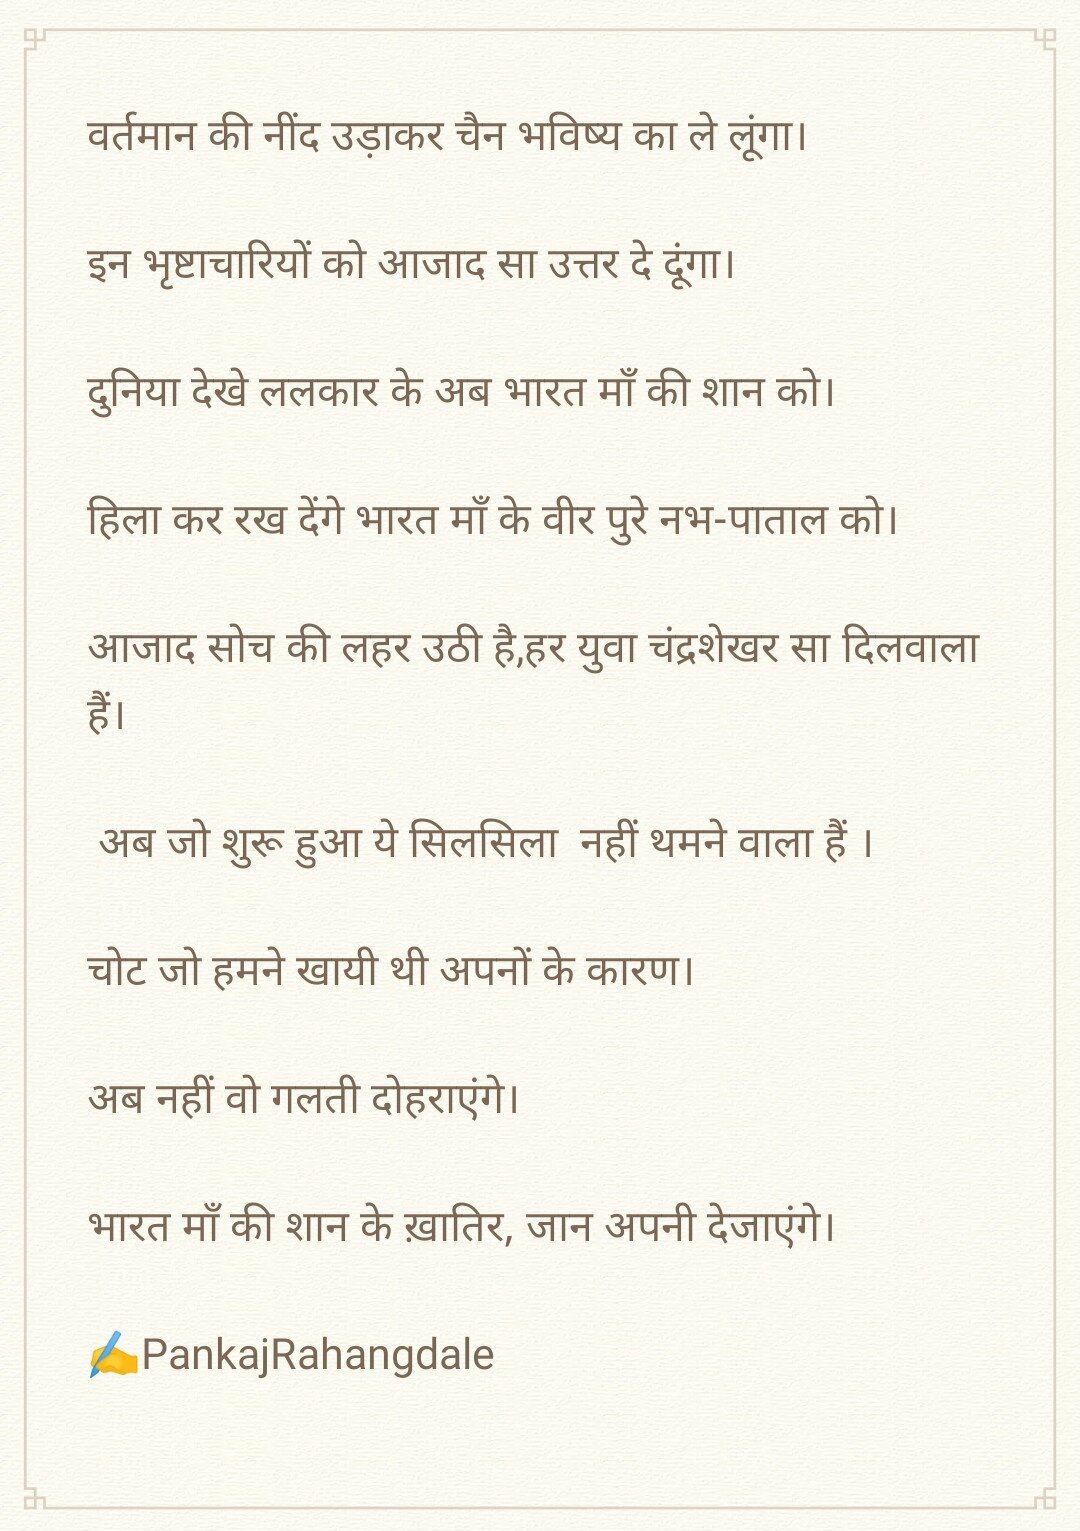 वर्तमान की नींद उड़ाकर चैन भविष्य का ले लूंगा।
इन भृष्टाचारियों को आजाद सा उत्तर दे दूंगा।
दुनिया देखे ललकार के अब भारत माँ की शान को।
हिला कर रख देंगे भारत माँ के वीर पुरे नभ-पाताल को।
आजाद सोच की लहर उठी है,हर युवा चंद्रशेखर सा दिलवाला
हैं।
अब जो शुरू हुआ ये सिलसिला  नहीं थमने वाला हैं ।
चोट जो हमने खायी थी अपनों के कारण।
अब नहीं वो गलती दोहराएंगे।
भारत माँ की शान के ख़ातिर, जान अपनी देजाएंगे।
✍️PankajRahangdale